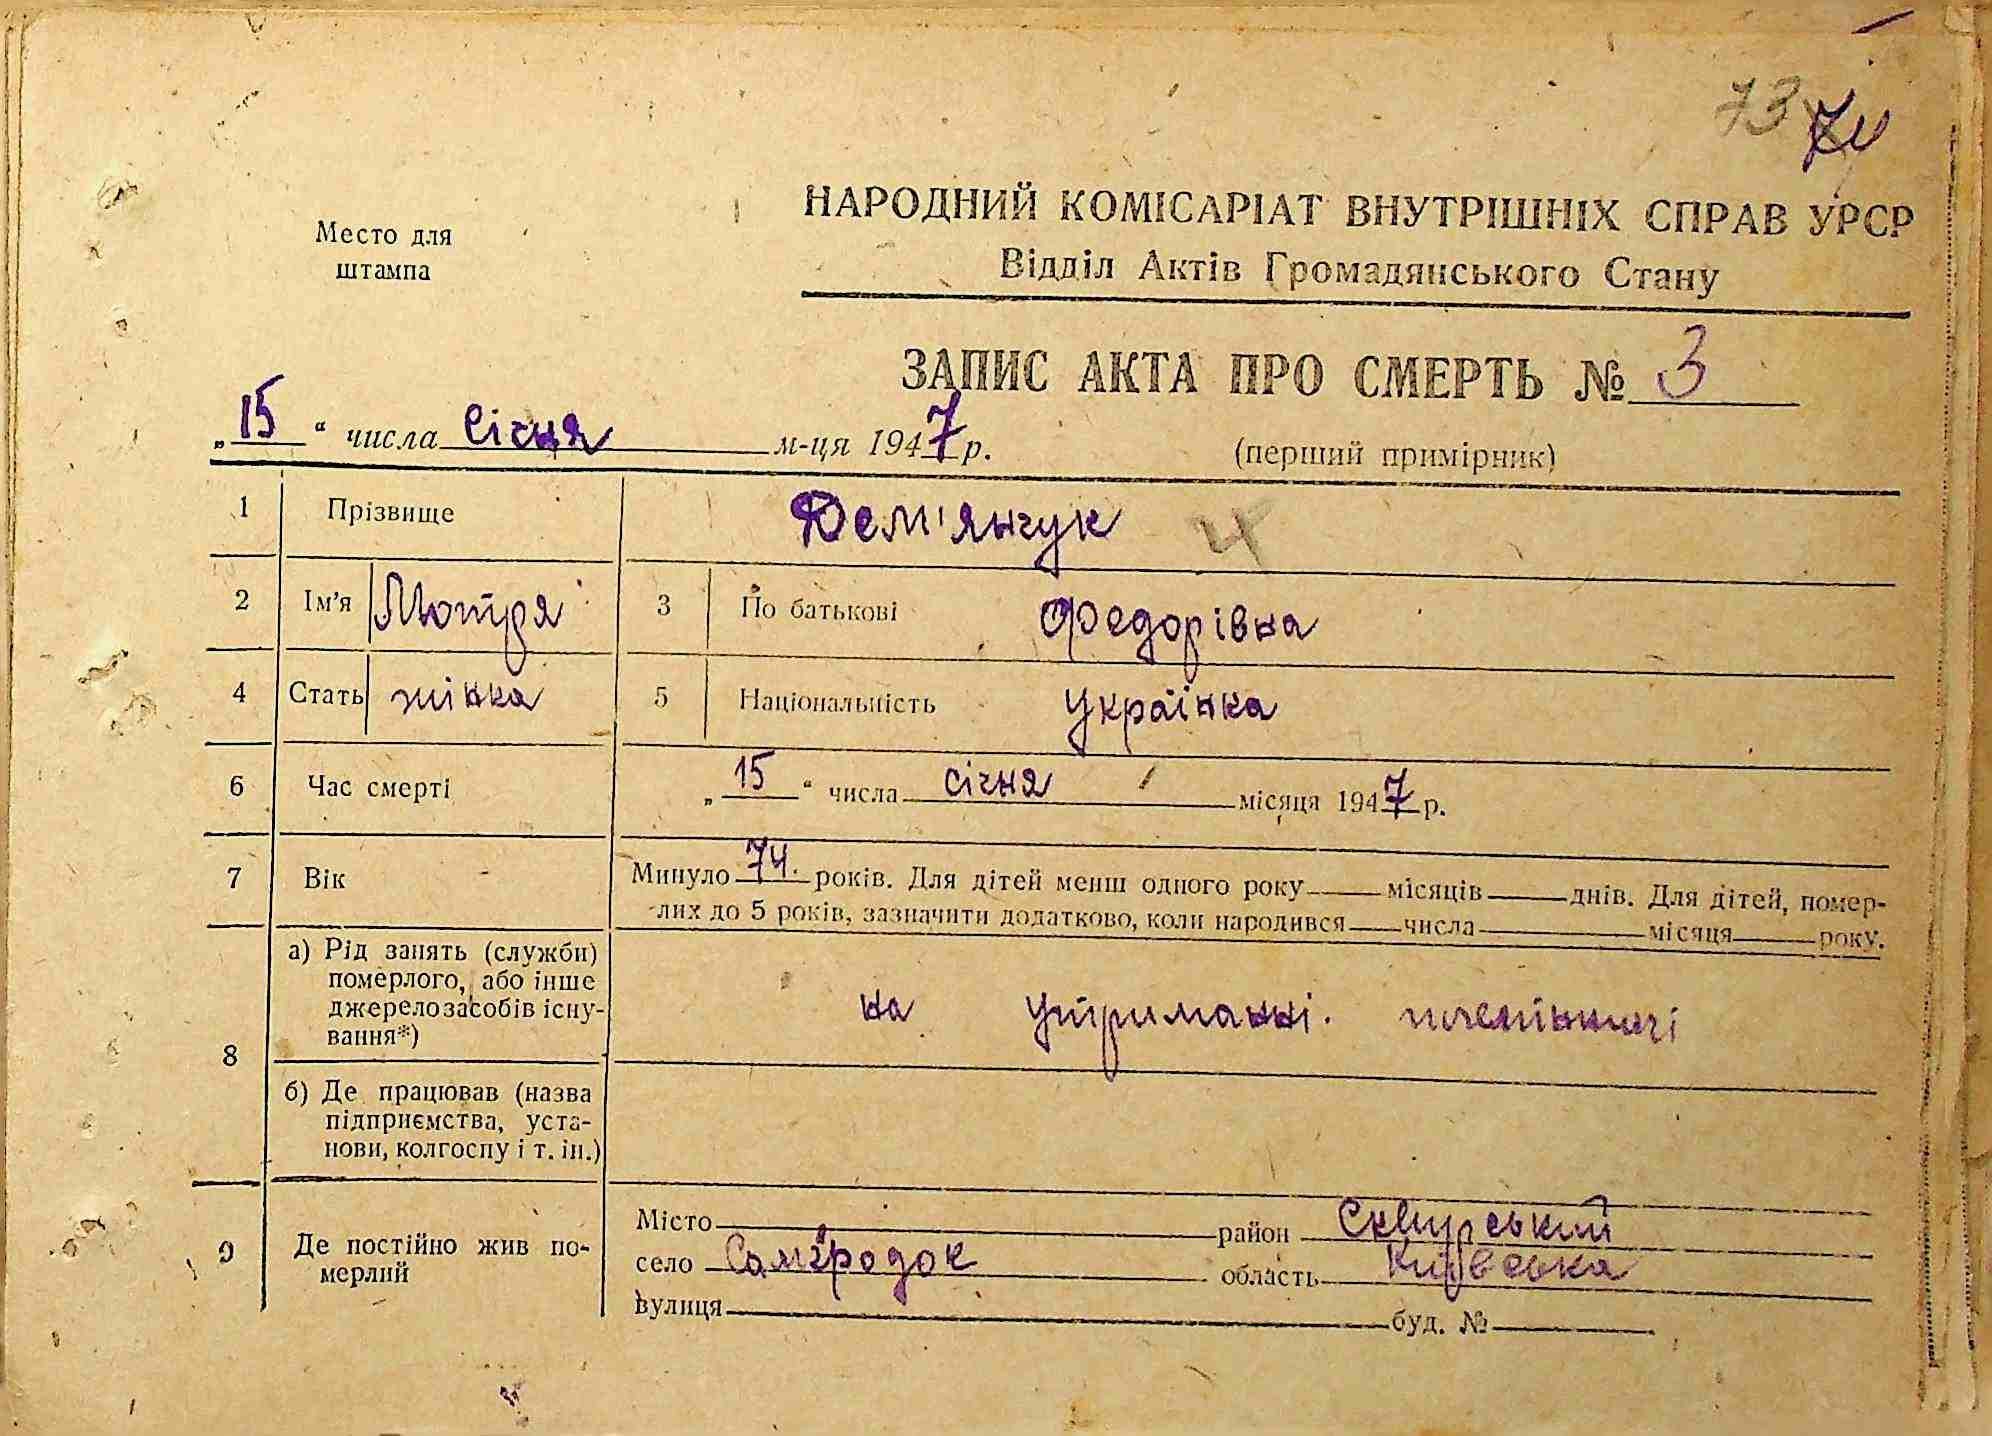 73 74
Место для
штампа
НАРОДНИЙ КОМІСАРІАТ ВНУТРІШНІХ СПРАВ УРСР
Відділ Актів Громадянського Стану
ЗАПИС АКТА ПРО СМЕРТЬ № 3
„15“ числа Січня м-ця 1947 р.
(перший примірник)
1 Прізвище Дем'янчук
2 Ім'я Мотря 3 По батькові Федорівна
4 Стать жінка 5 Національність Українка
6 Час смерті „15“ числа січня місяця 1947 р.
7 Вік Минуло 74 років. Для дітей менш одного року місяців днів. Для дітей, помер-
лих до 5 років, зазначити додатково, коли народився числа місяця року.
8 а) Рід занять (служби)
померлого, або інше
джерело засобів існу-
вання*) на утриманні племінниці
б) Де працював (назва
підприємства, уста-
нови, колгоспу і т. ін.)
9 Де постійно жив по-
мерлий
Місто район Сквирський
село Самгородок область Київська
вулиця буд. №